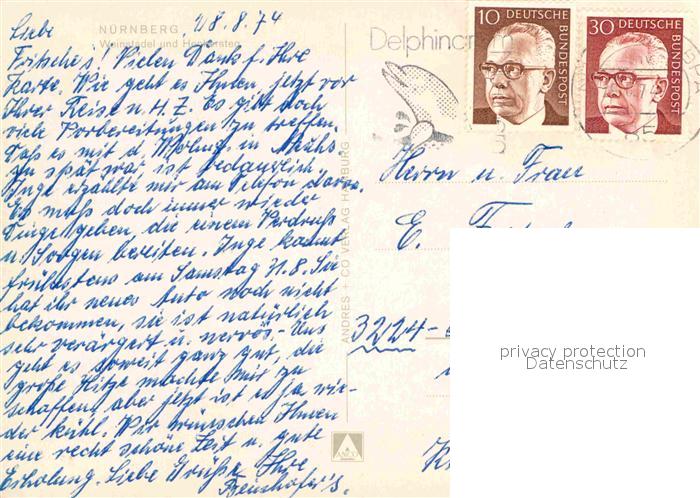 NÜRNBERG
Weinstadel und Henkersteg
28.8.74
Liebe
Fritsche's! Vielen Dank f. Ihre
Karte. Wie geht es Ihnen, jetzt vor
Ihrer Reise n. H. Z. Es gibt noch
viele Vorbereitungen zu treffen.
Daß es mit d. Wohng. in
zu spät war, ist bedauerlich.
Inge erzählte mir am Telefon davon.
Es muß doch immer wieder
Dinge geben, die einem Verdruß
u. Sorgen bereiten. Inge kommt
frühestens am Samstag 31.8. Sie
hat ihr neues Auto noch nicht
bekommen, sie ist natürlich
sehr verärgert u. nervös. - Uns
geht es soweit ganz gut, die
große Hitze machte mir zu
schaffen, aber jetzt ist es ja wie-
der kühl. Wir wünschen Ihnen
eine recht schöne Zeit u. gute
Erholung. Liebe Grüße Ihre
ANDRES + CO VERLAG HAMBURG
Delphin
10 DEUTSCHE
BUNDESPOST
30 DEUTSCHE
BUNDESPOST
Herrn u. Frau
E.
3224-
privacy protection
Datenschutz